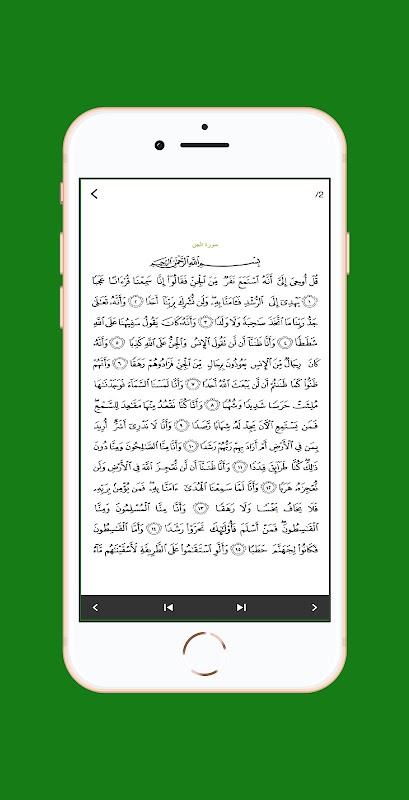 /2
سورة الجن
بِسْمِ اللَّهِ الرَّحْمَٰنِ الرَّحِيمِ
قُلْ أُوحِيَ إِلَيَّ أَنَّهُ ٱسْتَمَعَ نَفَرٌ مِّنَ ٱلْجِنِّ فَقَالُوٓا۟ إِنَّا سَمِعْنَا قُرْءَانًا عَجَبًا
﴿١﴾ يَهْدِىٓ إِلَى ٱلرُّشْدِ فَـَٔامَنَّا بِهِۦ وَلَن نُّشْرِكَ بِرَبِّنَآ أَحَدًا ﴿٢﴾ وَأَنَّهُۥ تَعَٰلَىٰ
جَدُّ رَبِّنَا مَا ٱتَّخَذَ صَٰحِبَةً وَلَا وَلَدًا ﴿٣﴾ وَأَنَّهُۥ كَانَ يَقُولُ سَفِيهُنَا عَلَى ٱللَّهِ
شَطَطًا ﴿٤﴾ وَأَنَّا ظَنَنَّآ أَن لَّن تَقُولَ ٱلْإِنسُ وَٱلْجِنُّ عَلَى ٱللَّهِ كَذِبًا ﴿٥﴾ وَأَنَّهُۥ
كَانَ رِجَالٌ مِّنَ ٱلْإِنسِ يَعُوذُونَ بِرِجَالٍ مِّنَ ٱلْجِنِّ فَزَادُوهُمْ رَهَقًا ﴿٦﴾ وَأَنَّهُمْ
ظَنُّوا۟ كَمَا ظَنَنتُمْ أَن لَّن يَبْعَثَ ٱللَّهُ أَحَدًا ﴿٧﴾ وَأَنَّا لَمَسْنَا ٱلسَّمَآءَ فَوَجَدْنَٰهَا
مُلِئَتْ حَرَسًا شَدِيدًا وَشُهُبًا ﴿٨﴾ وَأَنَّا كُنَّا نَقْعُدُ مِنْهَا مَقَٰعِدَ لِلسَّمْعِ
فَمَن يَسْتَمِعِ ٱلْـَٔانَ يَجِدْ لَهُۥ شِهَابًا رَّصَدًا ﴿٩﴾ وَأَنَّا لَا نَدْرِىٓ أَشَرٌّ أُرِيدَ
بِمَن فِى ٱلْأَرْضِ أَمْ أَرَادَ بِهِمْ رَبُّهُمْ رَشَدًا ﴿١٠﴾ وَأَنَّا مِنَّا ٱلصَّٰلِحُونَ وَمِنَّا دُونَ
ذَٰلِكَ كُنَّا طَرَآئِقَ قِدَدًا ﴿١١﴾ وَأَنَّا ظَنَنَّآ أَن لَّن نُّعْجِزَ ٱللَّهَ فِى ٱلْأَرْضِ وَلَن
نُّعْجِزَهُۥ هَرَبًا ﴿١٢﴾ وَأَنَّا لَمَّا سَمِعْنَا ٱلْهُدَىٰٓ ءَامَنَّا بِهِۦ فَمَن يُؤْمِنۢ بِرَبِّهِۦ
فَلَا يَخَافُ بَخْسًا وَلَا رَهَقًا ﴿١٣﴾ وَأَنَّا مِنَّا ٱلْمُسْلِمُونَ وَمِنَّا
ٱلْقَٰسِطُونَ فَمَنْ أَسْلَمَ فَأُو۟لَٰٓئِكَ تَحَرَّوْا۟ رَشَدًا ﴿١٤﴾ وَأَمَّا ٱلْقَٰسِطُونَ
فَكَانُوا۟ لِجَهَنَّمَ حَطَبًا ﴿١٥﴾ وَأَلَّوِ ٱسْتَقَٰمُوا۟ عَلَى ٱلطَّرِيقَةِ لَأَسْقَيْنَٰهُم مَّآءً